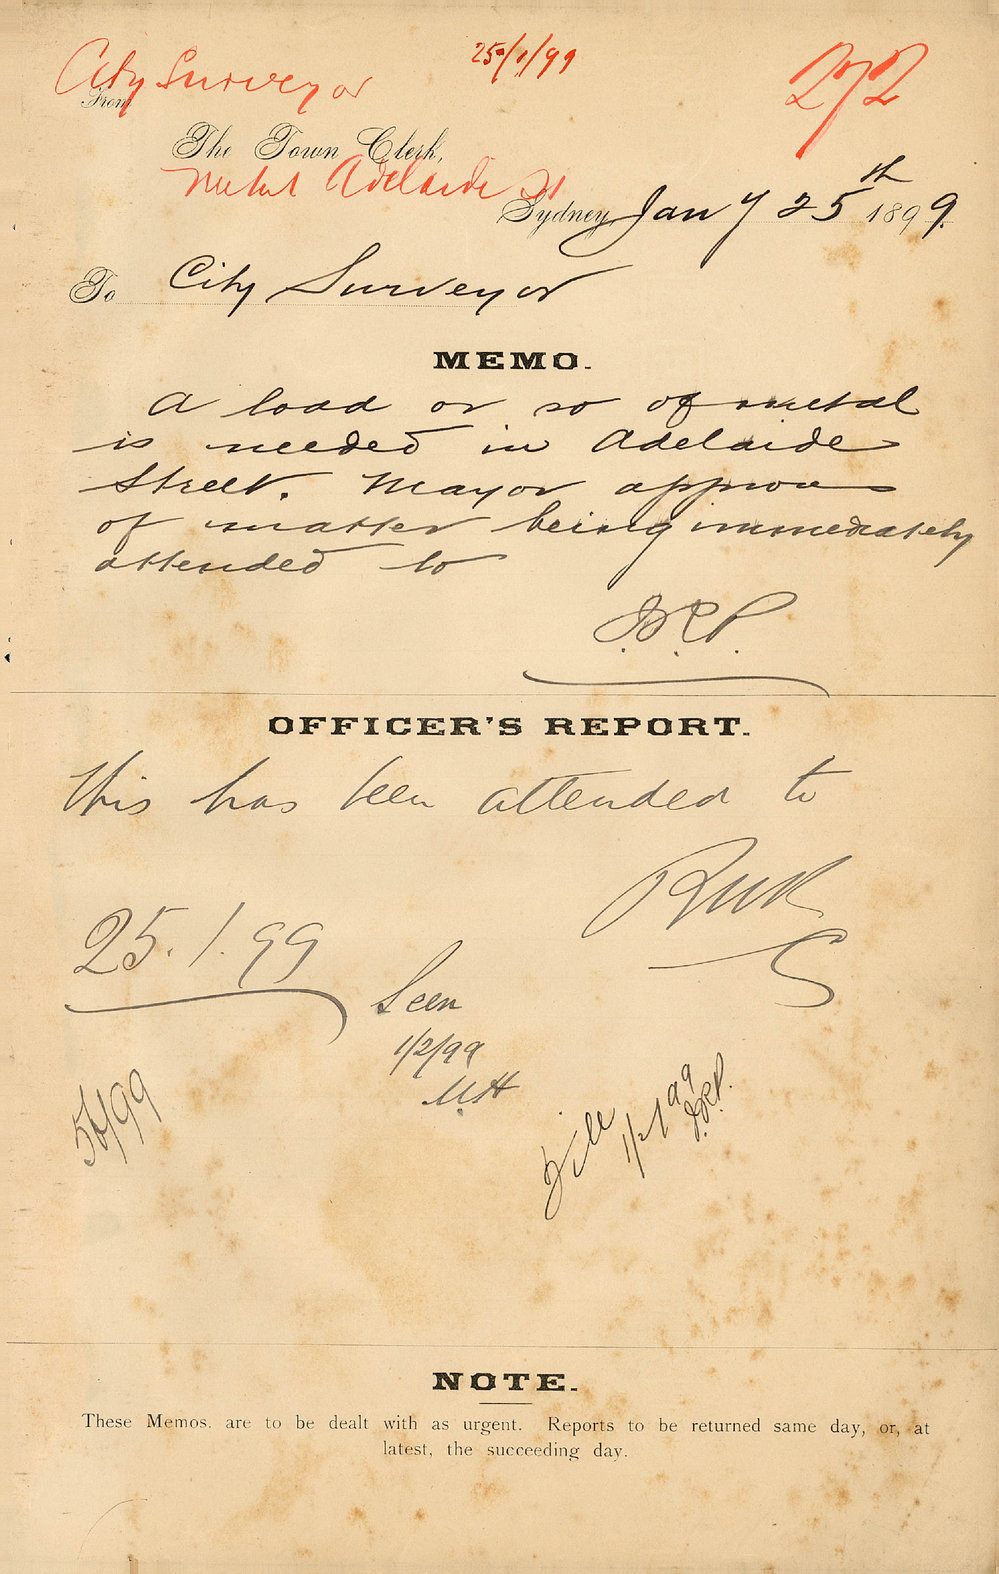 City Surveyor
25/1/99
272
From
The Town Clerk,
Metal Adelaide St
Sydney, Jany 25th 1899.
To City Surveyor
MEMO.
A load or so of metal
is needed in Adelaide
Street. Mayor approves
of matter being immediately
attended to
OFFICER'S REPORT.
This has been attended to
25.1.99
Seen
1/2/99
File 1/2/99
NOTE.
These Memos. are to be dealt with as urgent. Reports to be returned same day, or, at
latest, the succeeding day.